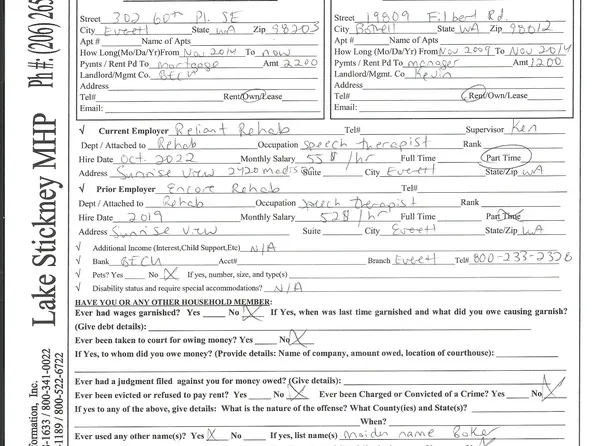 Street 302 60th Pl. SE
City Everett State WA Zip 98203
Apt # Name of Apts
How Long(Mo/Da/Yr)From Nov 2014 To now
Pymts / Rent Pd To mortgage Amt 2200
Landlord/Mgmt. Co. BECU
Address
Tel# Rent/Own/Lease
Email:
Street 19809 Filbert Rd.
City Bothell State WA Zip 98012
Apt # Name of Apts
How Long(Mo/Da/Yr)From Nov 2009 To Nov 2014
Pymts / Rent Pd To manager Amt 1200
Landlord/Mgmt. Co. Kevin
Address
Tel# Rent/Own/Lease
Email:
√ Current Employer Reliant Rehab Tel# Supervisor Ken
Dept / Attached to Rehab Occupation speech therapist Rank
Hire Date Oct. 2022 Monthly Salary 55 $/hr Full Time Part Time
Address Sunrise View 2420 Madison Suite City Everett State/Zip WA
√ Prior Employer Encore Rehab Tel#
Dept / Attached to Rehab Occupation speech therapist Rank
Hire Date 2019 Monthly Salary 52$/hr Full Time Part Time
Address Sunrise View Suite City Everett State/Zip WA
√ Additional Income (Interest,Child Support,Etc) N/A
√ Bank BECU Acct# Branch Everett Tel# 800-233-2328
√ Pets? Yes No X If yes, number, size, and type(s)
√ Disability status and require special accommodations? N/A
HAVE YOU OR ANY OTHER HOUSEHOLD MEMBER:
Ever had wages garnished? Yes No X If Yes, when was last time garnished and what did you owe causing garnish?
(Give debt details):
Ever been taken to court for owing money? Yes No X
If Yes, to whom did you owe money? (Provide details: Name of company, amount owed, location of courthouse):
Ever had a judgment filed against you for money owed? (Give details):
Ever been evicted or refused to pay rent? Yes No X Ever been Charged or Convicted of a Crime? Yes No X
If yes to any of the above, give details: What is the nature of the offense? What County(ies) and State(s)?
When?
Ever used any other name(s)? Yes X No If yes, list name(s) maiden name Baker
Lake Stickney MHP Ph#: (206) 265
formation, Inc.
-1633 / 800-341-0022
-1189 / 800-522-6722